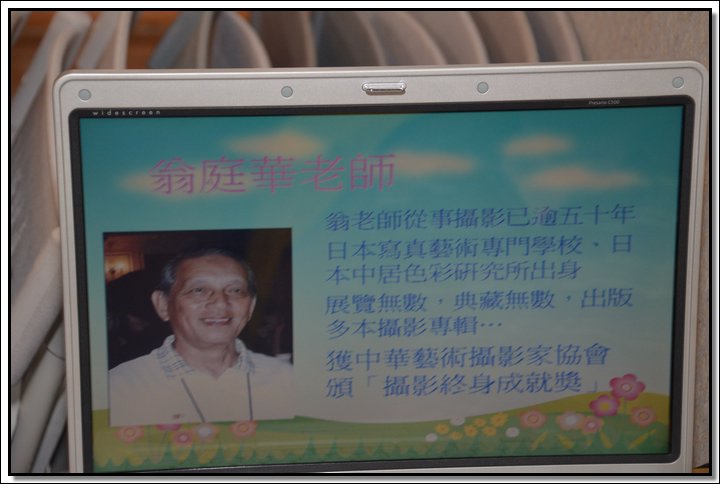 widescreen
Presario C500
翁庭華老師
翁老師從事攝影已逾五十年
日本寫真藝術專門學校、日
本中居色彩研究所出身
展覽無數，典藏無數，出版
多本攝影專輯…
獲中華藝術攝影家協會
頒「攝影終身成就獎」